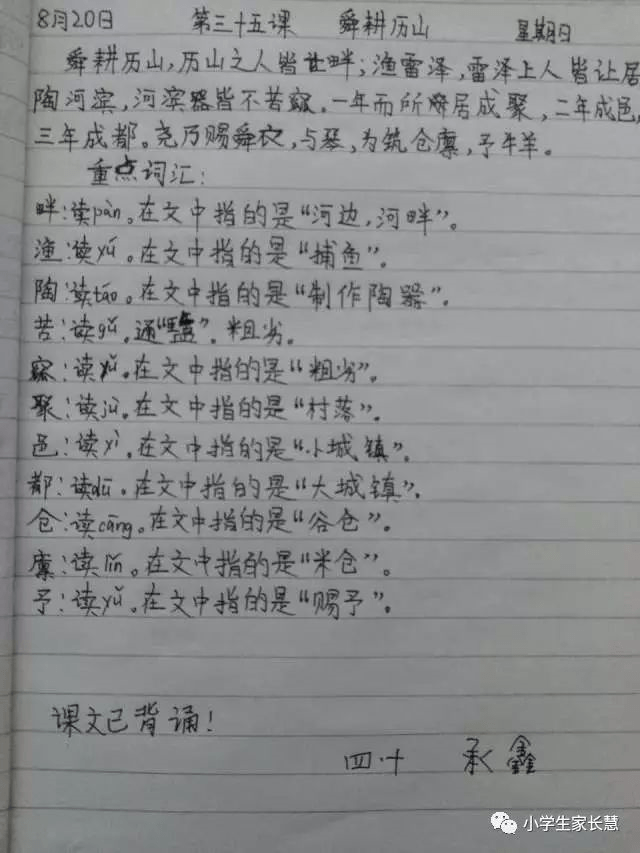 8月20日 第三十五课 舜耕历山 星期日
舜耕历山,历山之人皆让畔;渔雷泽,雷泽上人皆让居
陶河滨,河滨器皆不苦窳。一年而所居成聚,二年成邑,
三年成都。尧乃赐舜衣,与琴,为筑仓廪,予牛羊。
重点词汇:
畔:读pàn。在文中指的是“河边,河畔”。
渔:读yú。在文中指的是“捕鱼”。
陶:读táo。在文中指的是“制作陶器”。
苦:读gǔ。通“盬”。粗劣。
窳:读yǔ。在文中指的是“粗劣”。
聚:读jù。在文中指的是“村落”。
邑:读yì。在文中指的是“小城镇”。
都:读dū。在文中指的是“大城镇”。
仓:读cāng。在文中指的是“谷仓”。
廪:读lǐn。在文中指的是“米仓”。
予:读yǔ。在文中指的是“赐予”。
课文已背诵!
四.十 承鑫
小学生家长慧